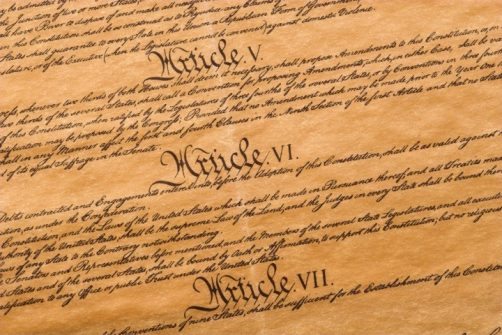 be admitted by the
the Junction of two or more
have Power to dispose of and make all needful
in this Constitution shall be so construed as to Prejudice any Claims of the
States shall guarantee to every State in this Union a Republican Form of Government,
of the Executive (when the Legislature cannot be convened) against domestic Violence.
Article. V.
whenever two thirds of both Houses shall deem it necessary, shall propose Amendments to this Constitution, or,
two thirds of the several States, shall call a Convention for proposing Amendments, which, in either Case, shall be
of this Constitution, when ratified by the Legislatures of three fourths of the several States, or by Conventions in three
may be proposed by the Congress; Provided that no Amendment which may be made prior to the Year One
shall in any Manner affect the first and fourth Clauses in the Ninth Section of the first Article; and that no
of its equal Suffrage in the Senate.
Article. VI.
Debts contracted and Engagements entered into, before the Adoption of this Constitution, shall be as valid against
as under the Confederation.
Constitution, and the Laws of the United States which shall be made in Pursuance thereof; and all Treaties
Authority of the United States, shall be the supreme Law of the Land; and the Judges in every State shall be bound
of any State to the Contrary notwithstanding.
Senators and Representatives before mentioned, and the Members of the several State Legislatures, and all
States and of the several States, shall be bound by Oath or Affirmation, to support this Constitution; but no religious
to any Office or public Trust under the United States.
Article. VII.
Conventions of nine States, shall be sufficient for the Establishment of this